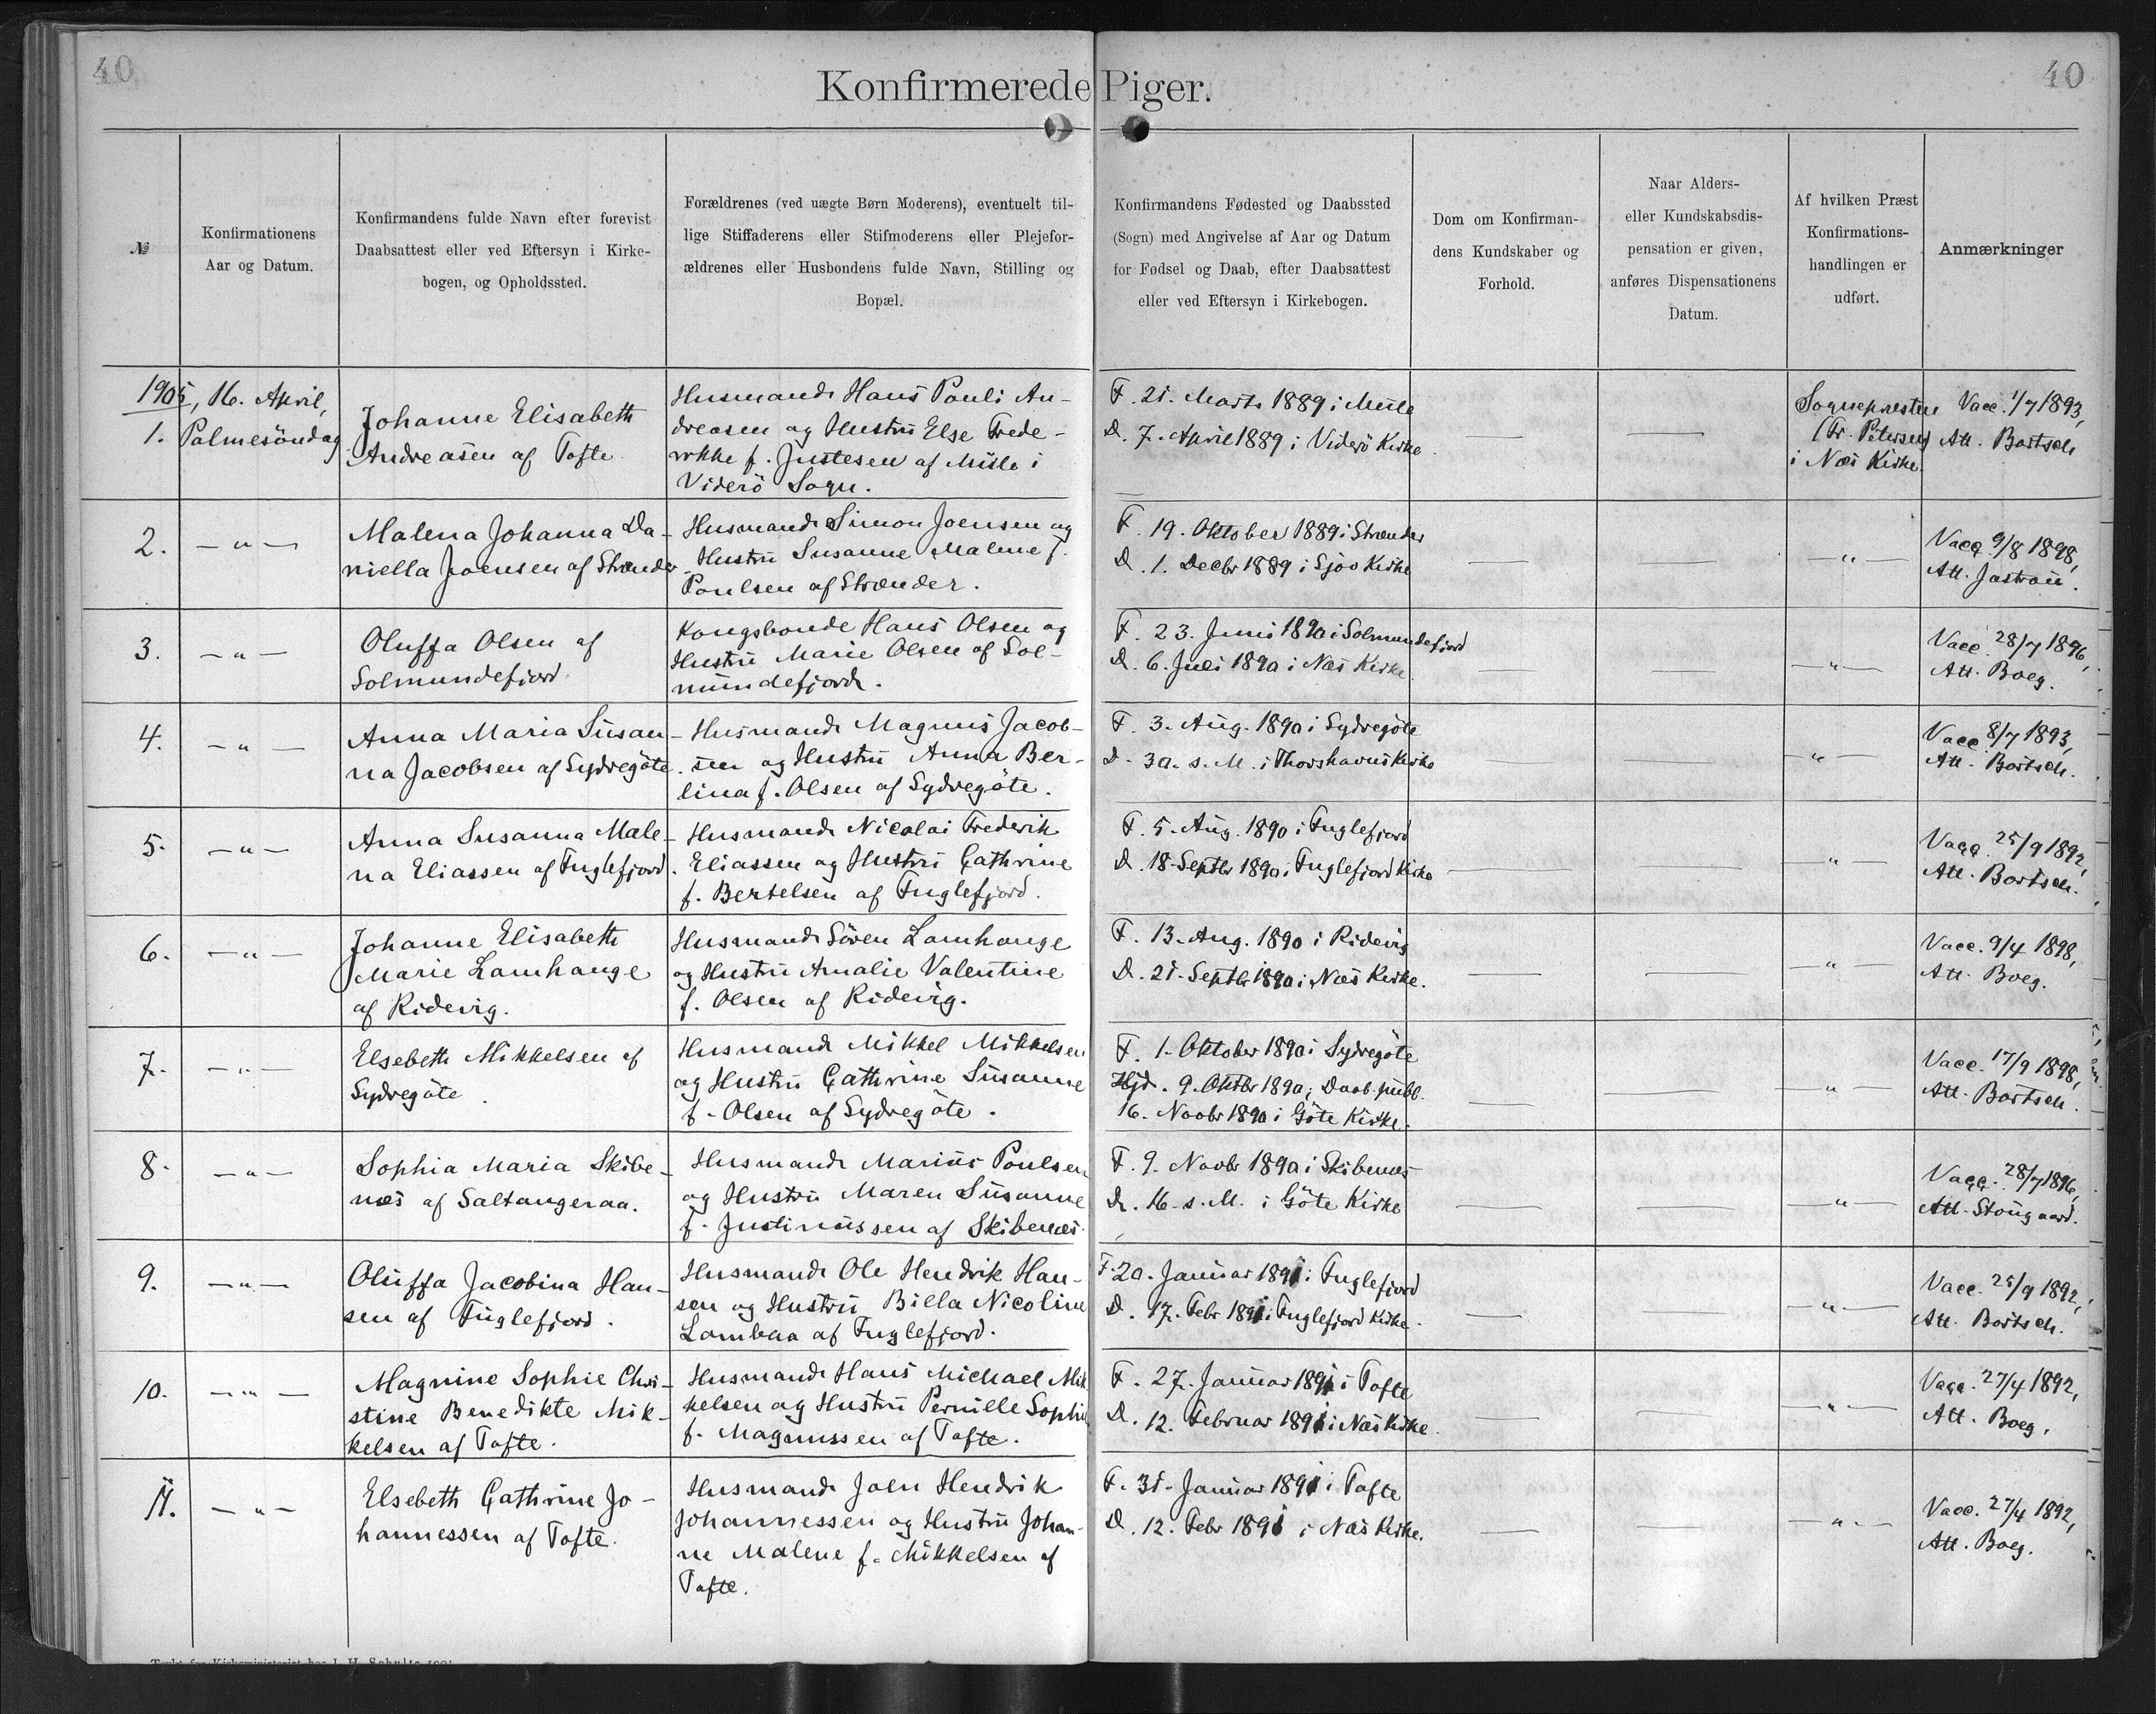 40
Konfirmerede Piger.
40
№
Konfirmationens
Aar og Datum.
Konfirmandens fulde Navn efter forevist
Daabsattest eller ved Eftersyn i Kirke-
bogen, og Opholdssted.
Forældrenes (ved uægte Børn Moderens), eventuelt til-
lige Stiffaderens eller Stifmoderens eller Plejefor-
ældrenes eller Husbondens fulde Navn, Stilling og
Bopæl.
Konfirmandens Fødested og Daabssted
(Sogn) med Angivelse af Aar og Datum
for Fødsel og Daab, efter Daabsattest
eller ved Eftersyn i Kirkebogen.
Dom om Konfirman-
dens Kundskaber og
Forhold.
Naar Alders-
eller Kundskabsdis-
pensation er given,
anføres Dispensationens
Datum.
Af hvilken Præst
Konfirmations-
handlingen er
udført.
Anmærkninger
1905, 16. April,
1. Palmesöndag
Johanne Elisabeth
Andreasen af Tofte.
Husmand Hans Pouli An-
dreasen og Hustru Else Frede-
rikke f. Justesen af Mule i
Viderö Sogn.
F. 21. Marts 1889 i Mule
D. 7. April 1889 i Viderö Kirke.
Sognepresten
(Fr. Petersen)
i Næs Kirke.
Vacc. 1/7 1893,
Att. Bartsch
2. —〃—
Malena Johanna Da-
niella Joensen af Strænder.
Husmand Simon Joensen og
Hustru Susanne Malene f.
Poulsen af Strænder.
F. 19. Oktober 1889 i Strænder
D. 1. Decbr 1889 i Sjov Kirke
—〃—
Vacc. 9/8 1898,
Att. Jastrau.
3. —〃—
Oluffa Olsen af
Solmundefjord.
Kongsbonde Hans Olsen og
Hustru Marie Olsen af Sol-
mundefjord.
F. 23. Juni 1890 i Solmundefjord
D. 6. Juli 1890 i Næs Kirke.
—〃—
Vacc. 28/7 1896,
Att. Boeg.
4. —〃—
Anna Maria Susan-
na Jacobsen af Sydregöte.
Husmand Magnus Jacob-
sen og Hustru Anna Ber-
lina f. Olsen af Sydregöte.
F. 3. Aug. 1890 i Sydregöte
D. 30. s. M. i Thorshavns Kirke
—〃—
Vacc. 8/7 1893,
Att. Bartsch.
5. —〃—
Anna Susanna Male-
na Eliassen af Fuglefjord.
Husmand Nicolai Frederik
Eliassen og Hustru Cathrine
f. Bertelsen af Fuglefjord.
F. 5. Aug. 1890 i Fuglefjord
D. 18. Septbr 1890 i Fuglefjord Kirke
—〃—
Vacc. 25/9 1892,
Att. Bartsch.
6. —〃—
Johanne Elisabeth
Marie Lamhauge
af Ridevig.
Husmand Sören Lamhauge
og Hustru Amalie Valentine
f. Olsen af Ridevig.
F. 13. Aug. 1890 i Ridevig
D. 21. Septbr 1890 i Næs Kirke.
—〃—
Vacc. 9/4 1898,
Att. Boeg.
7. —〃—
Elsebeth Mikkelsen af
Sydregöte.
Husmand Mikkel Mikkelsen
og Hustru Cathrine Susanne
f. Olsen af Sydregöte.
F. 1. Oktober 1890 i Sydregöte
Hjd. 9. Oktbr 1890; Daab publ.
16. Novbr 1890 i Göte Kirke.
—〃—
Vacc. 17/9 1898,
Att. Bartsch.
8. —〃—
Sophia Maria Skibe-
næs af Saltangeraa.
Husmand Marius Poulsen
og Hustru Maren Susanne
f. Justinussen af Skibenæs.
F. 9. Novbr 1890 i Skibenæs
D. 16. s. M. i Göte Kirke
—〃—
Vacc. 28/7 1896,
Att. Stougaard.
9. —〃—
Oluffa Jacobina Han-
sen af Fuglefjord.
Husmand Ole Hendrik Han-
sen og Hustru Billa Nicoline
Lambaa af Fuglefjord.
F. 20. Januar 1891 i Fuglefjord
D. 17. Febr 1891 i Fuglefjord Kirke.
—〃—
Vacc. 25/9 1892,
Att. Bartsch.
10. —〃—
Magnine Sophie Chri-
stine Benedikte Mik-
kelsen af Tofte.
Husmand Hans Michael Mik
kelsen og Hustru Pernille Sophie
f. Magnussen af Tofte.
F. 27. Januar 1891 i Tofte
D. 12. Februar 1891 i Næs Kirke.
—〃—
Vacc. 27/4 1892,
Att. Boeg.
11. —〃—
Elsebeth Cathrine Jo-
hannessen af Tofte.
Husmand Joen Hendrik
Johannessen og Hustru Johan-
ne Malene f. Mikkelsen af
Tofte.
F. 31. Januar 1891 i Tofte
D. 12. Febr 1891 i Næs Kirke.
—〃—
Vacc. 27/4 1892,
Att. Boeg.